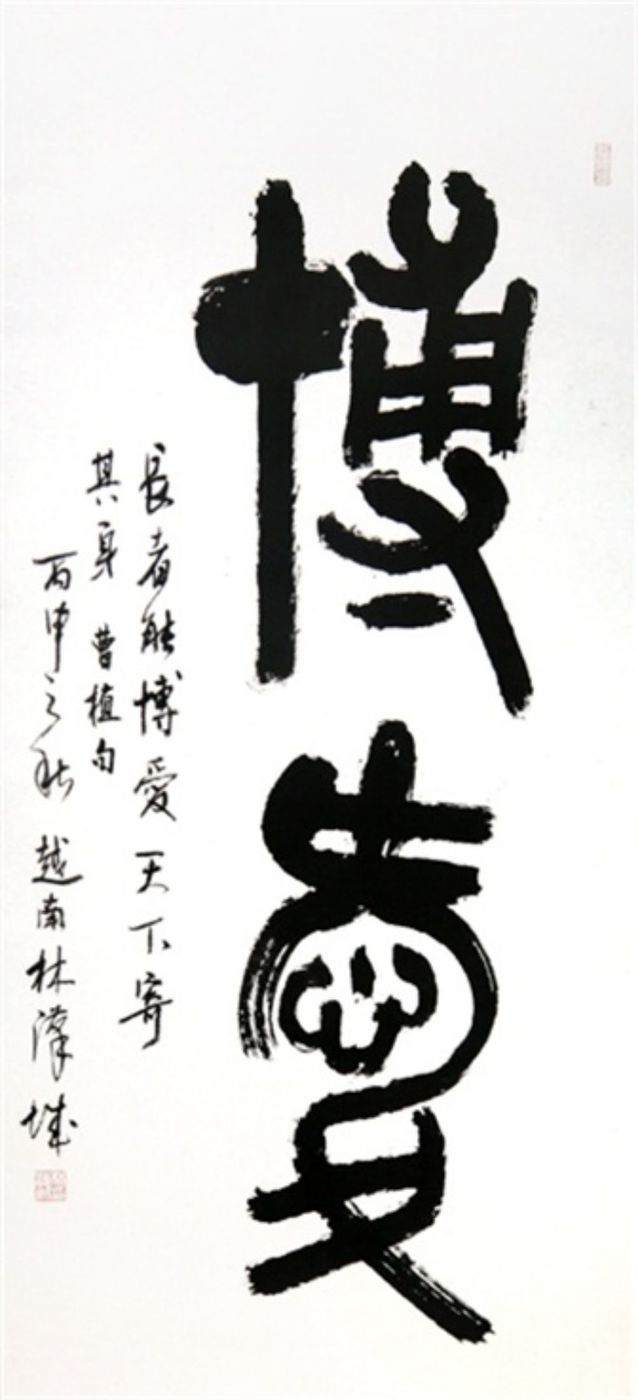 博愛
長者能博愛天下寄
其身 曹植句
丙申之秋 越南林漢城